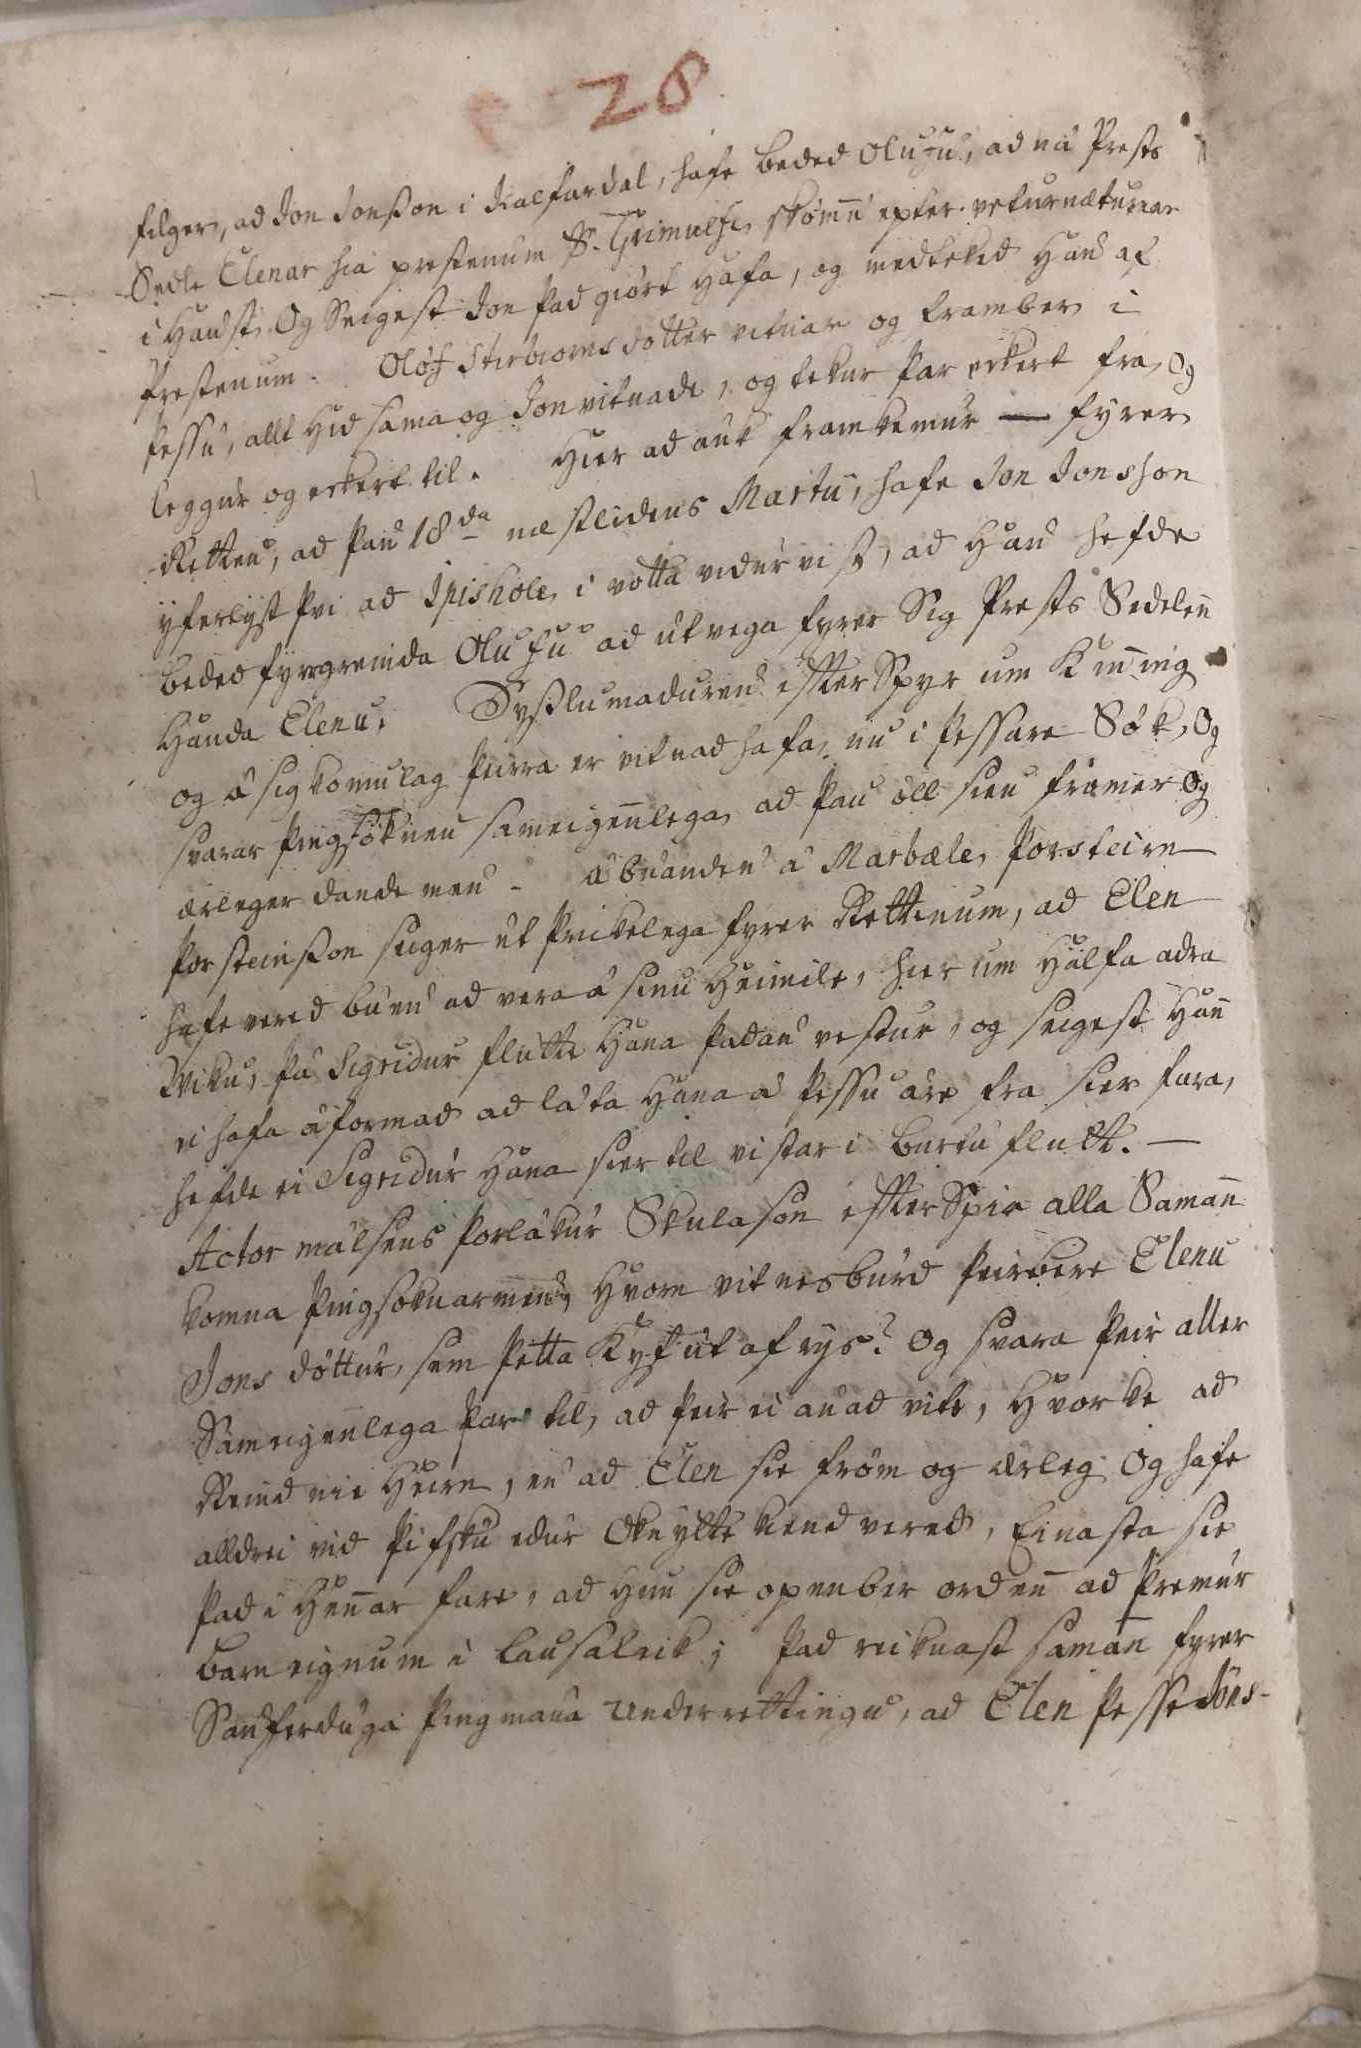 28
filger, ad Jon Jonsson i Kalfardal, hafe beded Olufu, ad ná Prests
Sedle Elenar hia prestenum Sr. Grimulfe, skömmu epter veturnæturnar
i Haust, Og Seigest Jon þad giört hafa, og medteked Hann af
Prestenum. Olöf Styrbiörnsdotter vitnar og framber i
þessu, allt hid sama og Jon vitnade, og tekur þar eckert fra, Og
leggur og eckert til. Hier ad auk framkemur fyrer
Rettenn, ad þann 18da næstlidens Martii, hafe Jon Jonsson
yferlyst þvi ad Ipishole, i votta vidurvist, ad Hann hefde
beded fyrrgreinda Olufu ad utvega fyrer Sig Prests Sedelenn
Handa Elenu. Sysslumadurenn effterSpyr um Kynning
og ásigkomulag þeirra er vitnad hafa, nu i þessare Sök, Og
svarar þingsóknenn sameigennlega, ad þau öll sieu fromer Og
ærleger dande menn. ábuanden á Marbæle, Þorsteirn
Þorsteinsson seiger ut þrickelega fyrer Rettenum, ad Elen
hafe vered buen ad vera á sinu Heimile, hier um Halfa adra
Wiku, þá Sigridur flutte Hana þadan vestur, og seigest Hann
ei hafa áformad ad láta Hana á þessu áre fra sier fara,
hefde ei Sigridur Hana sier til vistar i burtu flutt.
Actor málsens Þorlákur Skulason effterSpir alla Samann
komna þingsóknarmenn, Hvorn vitnesburd þeir bere Elenu
Jons dóttur, sem þetta Kyf út af rys? Og svara þeir aller
Sameigennlega þar til, ad þeir ei annad vite, Hvorke ad
Reind nie Heirn, en ad Elen sie fröm og ærleg Og hafe
alldrei vid þifsku edur Oknytte kiend vered, Einasta sie
þad i Hennar fare, ad Hun sie openber ordenn ad þremur
barneignum i lausaleik; þad reiknast saman fyrer
Sannferduga þingmanna underrettingu, ad Elen þesse Jóns-